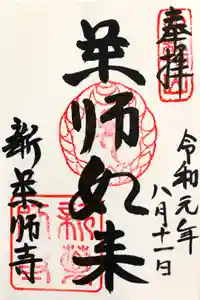 奉拝
令和元年
八月十一日
薬師如来
新薬師寺